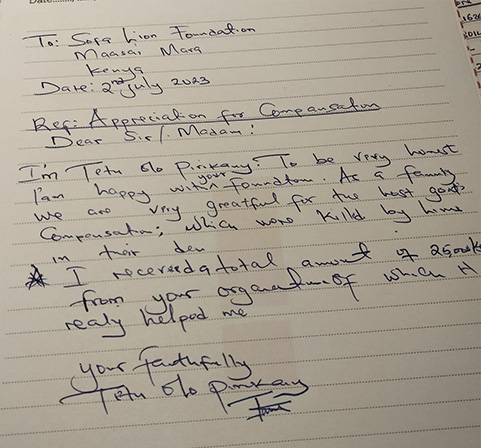 To: Sofa Lion Foundation
Maasai Mara
Kenya
Date: 2nd July 2023
Ref: Appreciation for Compensation
Dear Sir/Madam:
I'm Tetu Olo Pinkany. To be very honest
I'am happy with your Foundtion. As a family
we are very greatful for the host goats
Compensation; which were killd by hime
in their den
I received a total amount of
from your organation of which it
realy helped me
your faithfully
Tetu Olo Pinkany